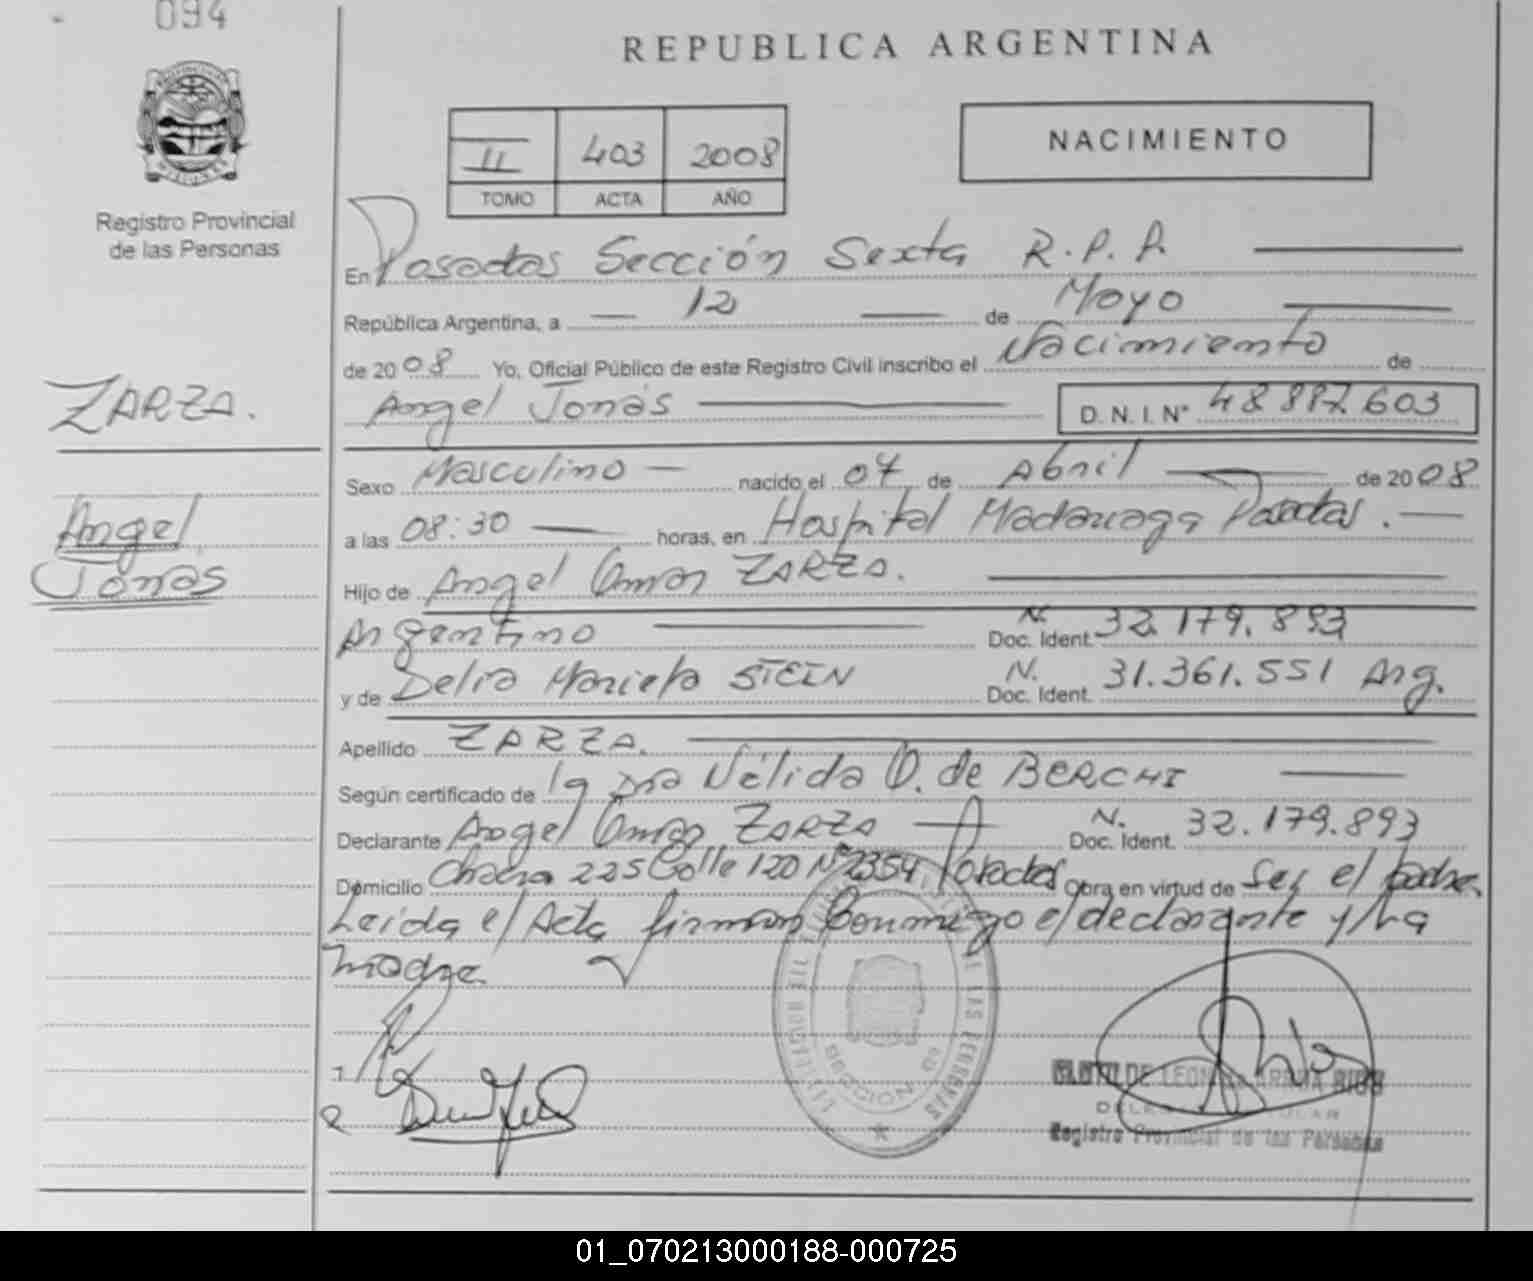 094
REPUBLICA ARGENTINA
II 403 2008
TOMO ACTA AÑO
NACIMIENTO
Registro Provincial
de las Personas
En Posadas Sección Sexta R.P.P.
República Argentina, a 12 de Mayo
de 2008 Yo, Oficial Público de este Registro Civil inscribo el Nacimiento de
ZARZA.
Angel Jonás D.N.I.N° 48.887.603
Sexo Masculino nacido el 07 de Abril de 2008
Angel
Jonás
a las 08:30 horas, en Hospital Madariaga Posadas.
Hijo de Angel Omar ZARZA.
Argentino N. Doc. Ident. 32.179.893
y de Delia Mariela STEIN N. Doc. Ident. 31.361.551 Arg.
Apellido ZARZA.
Según certificado de la Dra Nélida O. de BERCHI
Declarante Angel Omar ZARZA N. Doc. Ident. 32.179.893
Domicilio Chacra 225 Calle 120 N° 2354 Posadas Obra en virtud de Ser el padre.
Leída el Acta firman Conmigo el declarante y La
madre
1
2
SECCION 6a
DE LAS PERSONAS
Registro Provincial de las Personas
01_070213000188-000725